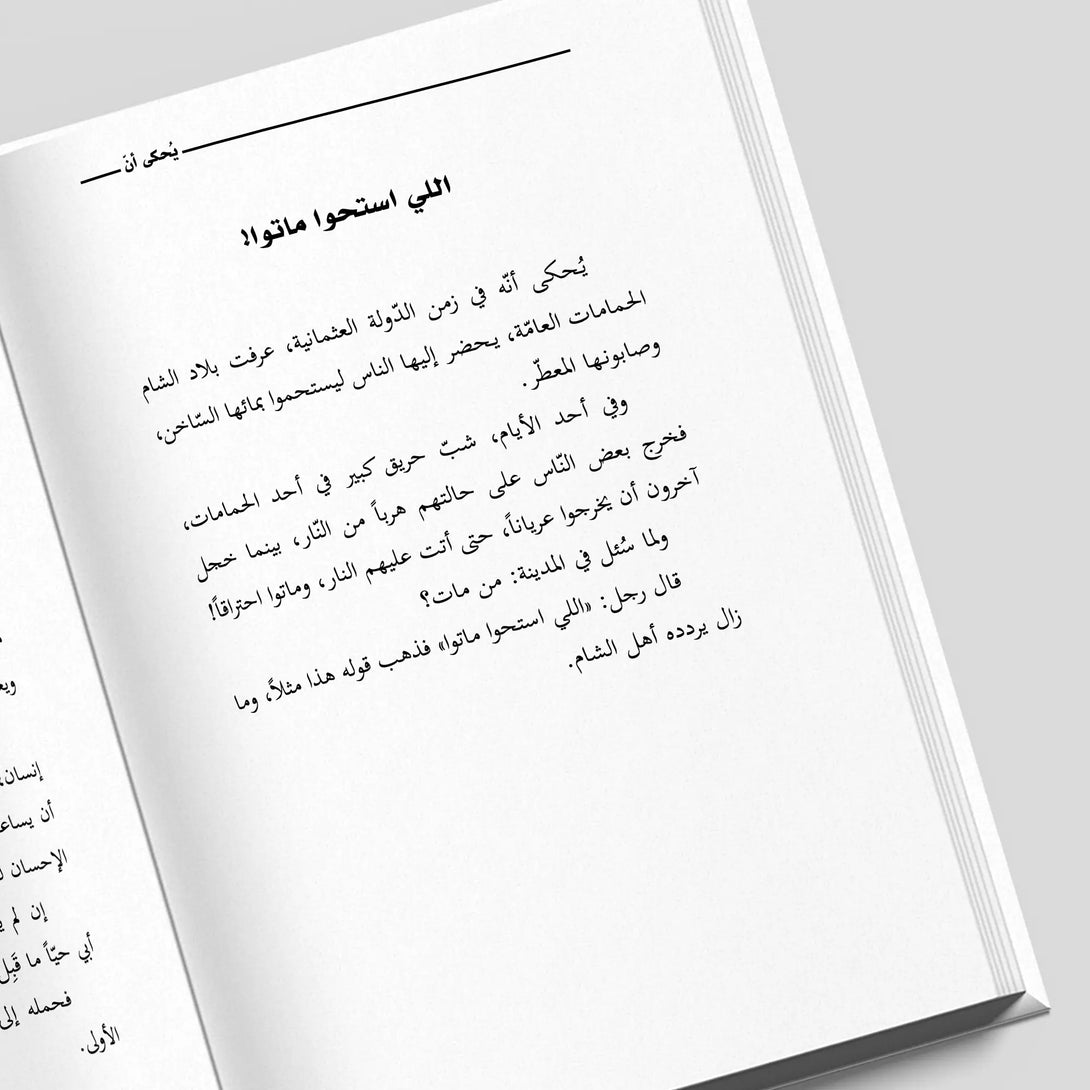 يُحكى أنّ
اللي استحوا ماتوا!
يُحكى أنّه في زمن الدّولة العثمانية، عرفت بلاد الشام
الحمامات العامّة، يحضر إليها الناس ليستحموا بمائها السّاخن،
وصابونها المعطّر.
وفي أحد الأيام، شبّ حريق كبير في أحد الحمامات،
فخرج بعض النّاس على حالتهم هرباً من النّار، بينما خجل
آخرون أن يخرجوا عرياناً، حتى أتت عليهم النار، وماتوا احتراقاً!
ولما سُئل في المدينة: من مات؟
قال رجل: «اللي استحوا ماتوا» فذهب قوله هذا مثلاً، وما
زال يردده أهل الشام.
إنسان،
أن
الإحسان
إن لم
أبي حيّاً ما قَبِل
فحمله إلى
الأولى.